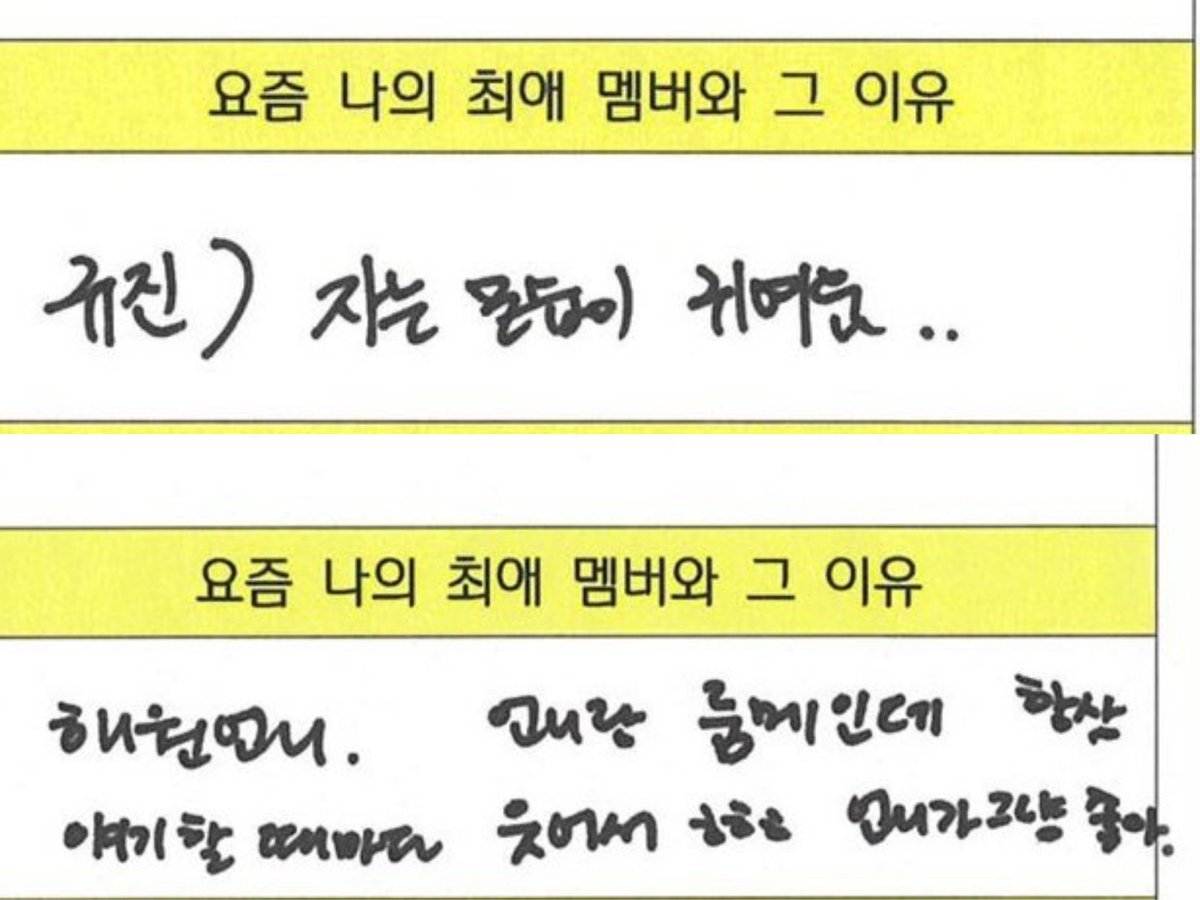 요즘 나의 최애 멤버와 그 이유
규진) 자는 모습이 귀여웠..
요즘 나의 최애 멤버와 그 이유
해원언니. 언니랑 룸메인데 항상
얘기할 때마다 웃어서 ㅎㅎ 언니가 그냥 좋아.